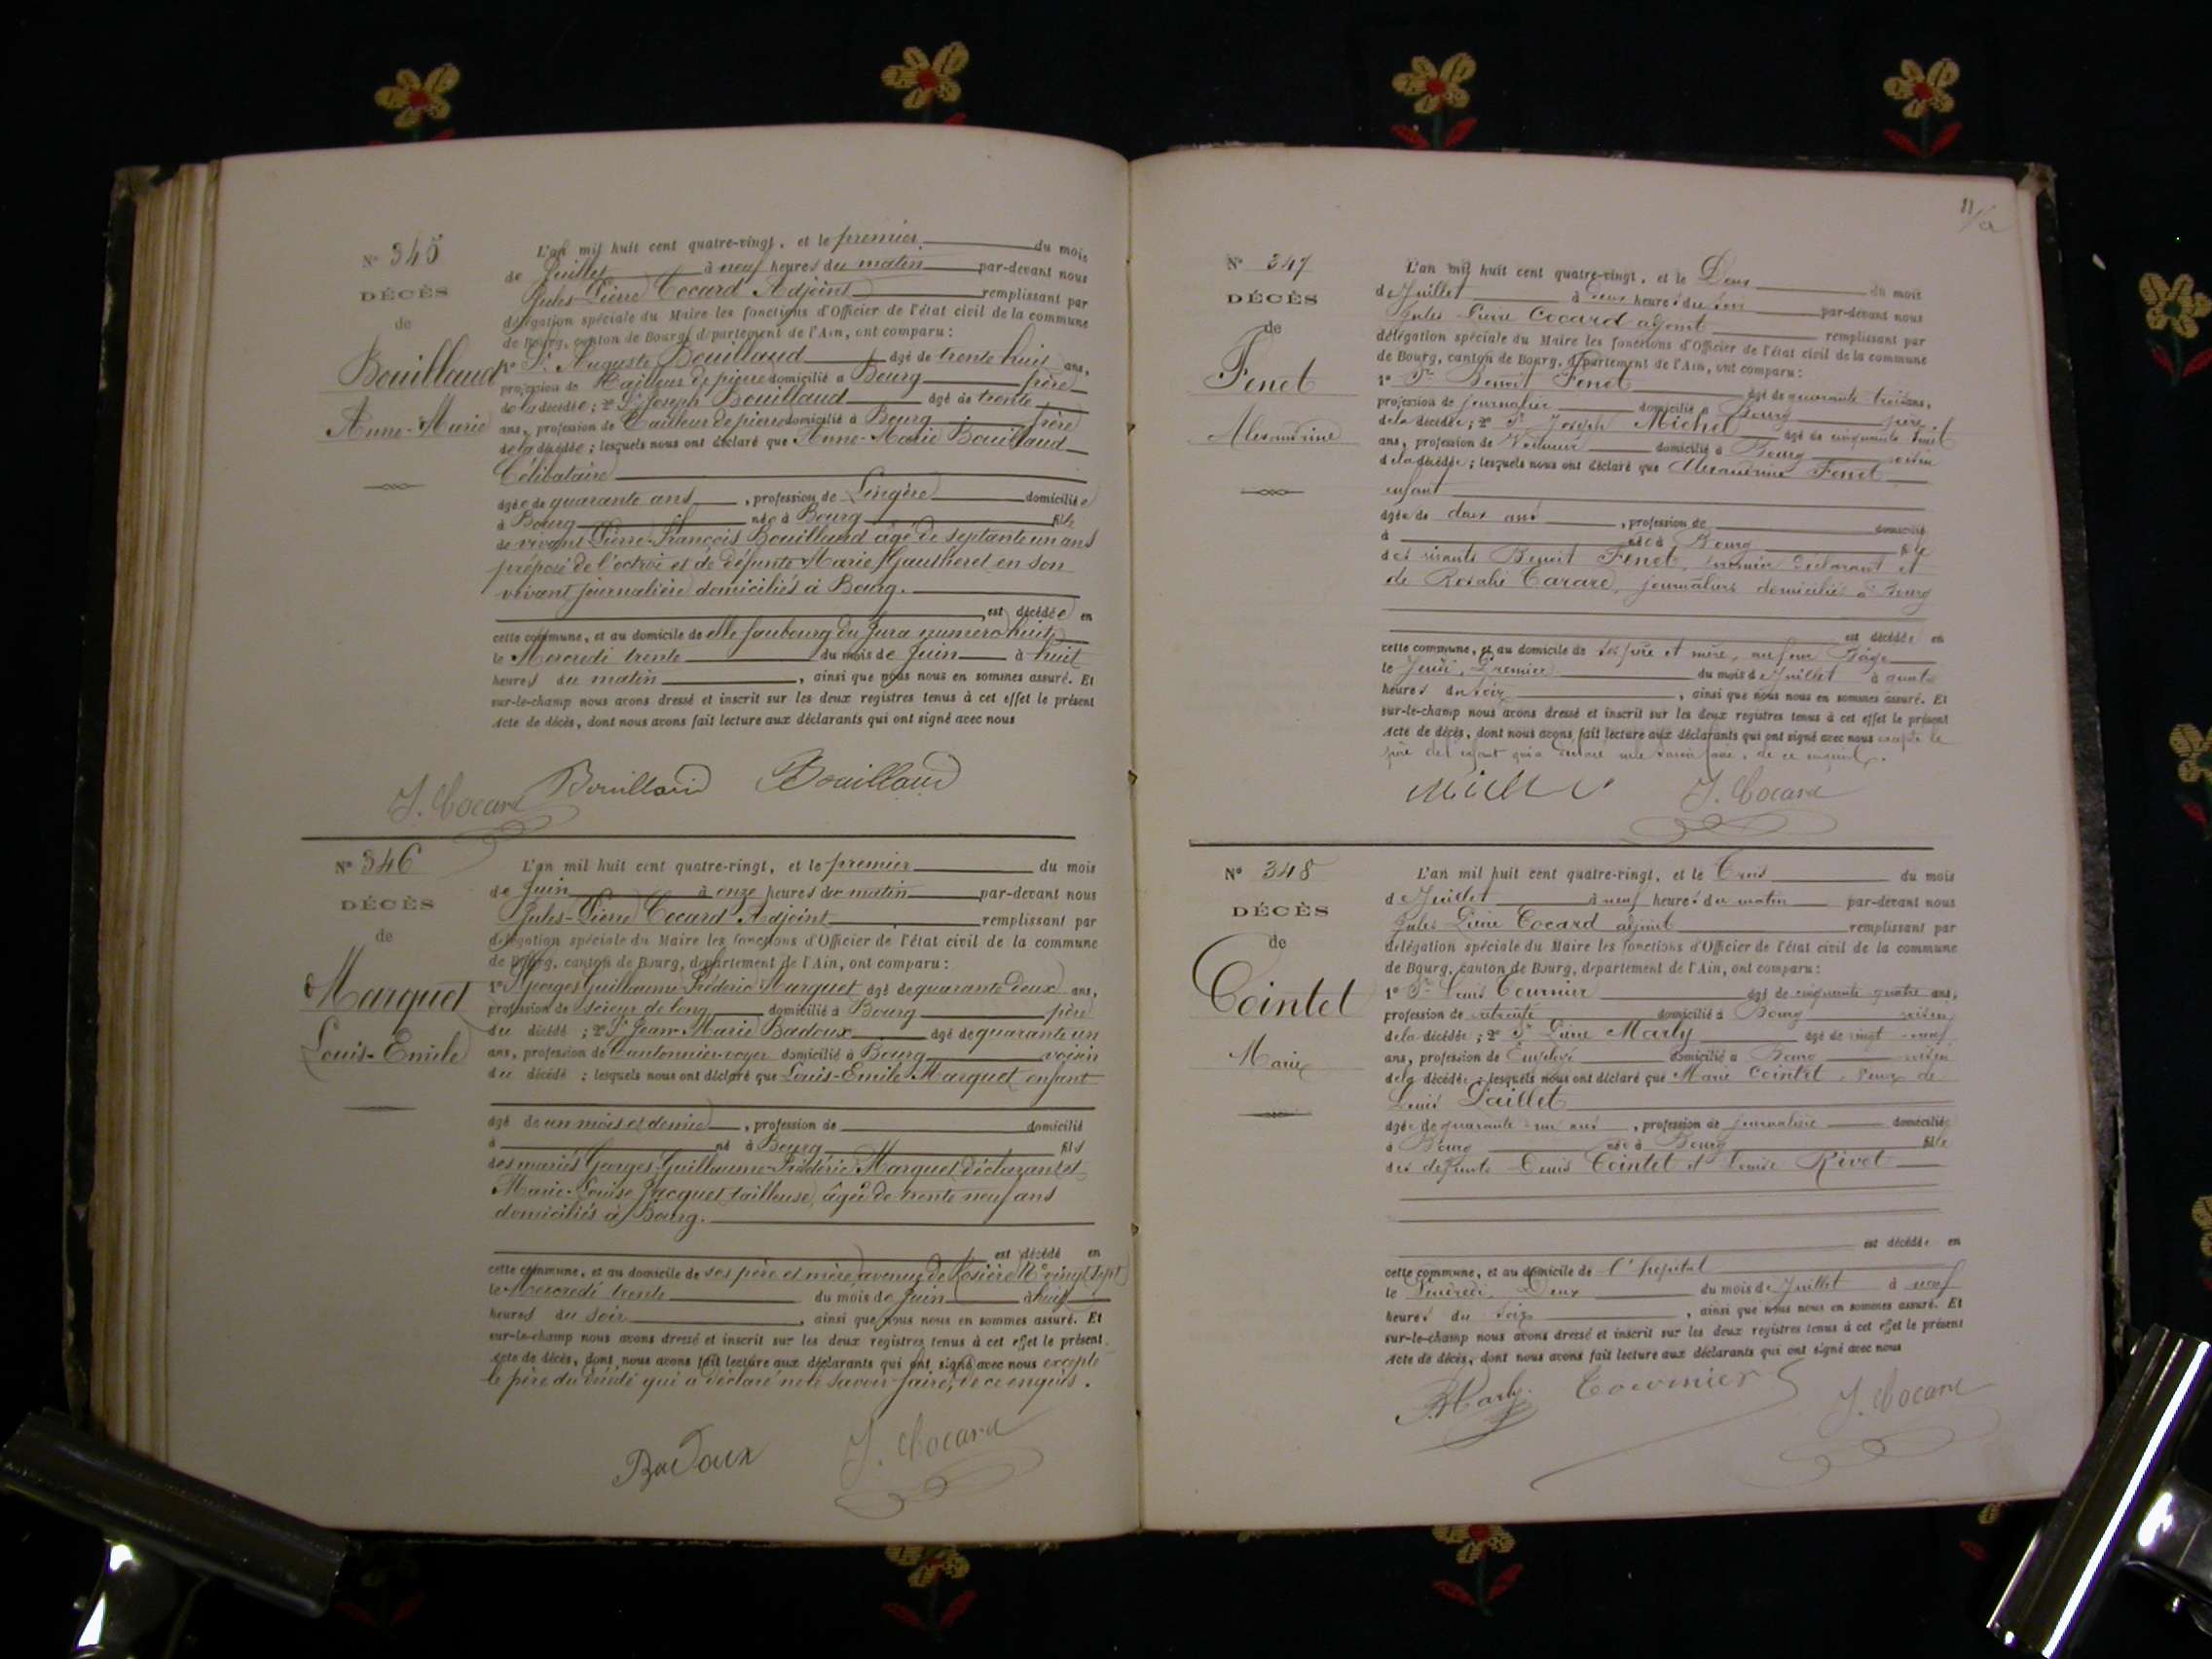 N° 345
DÉCÈS
de
Bouillaud
Anne-Marie
L'an mil huit cent quatre-vingt, et le premier du mois
de Juillet à neuf heures du matin par-devant nous
Jules-Pierre Cocard Adjoint remplissant par
délégation spéciale du Maire les fonctions d'Officier de l'état civil de la commune
de Bourg, canton de Bourg, département de l'Ain, ont comparu :
1° Sr Auguste Bouillaud âgé de trente huit ans,
profession de Tailleur de pierre domicilié à Bourg frère
de la décédée ; 2° Sr Joseph Bouillaud âgé de trente
ans, profession de Tailleur de pierre domicilié à Bourg frère
de la décédée ; lesquels nous ont déclaré que Anne-Marie Bouillaud
Célibataire
âgée de quarante ans, profession de Lingère domiciliée
à Bourg née à Bourg fille
de vivant Pierre-François Bouillaud âgé de septante un ans
préposé de l'octroi et de défunte Marie Gautheret en son
vivant journalière domiciliés à Bourg.
est décédée en
cette commune, et au domicile de elle faubourg du Jura numéro huit
le Mercredi trente du mois de Juin à huit
heures du matin, ainsi que nous nous en sommes assuré. Et
sur-le-champ nous avons dressé et inscrit sur les deux registres tenus à cet effet le présent
Acte de décès, dont nous avons fait lecture aux déclarants qui ont signé avec nous
J. Cocard Bouillaud Bouillaud
N° 346
DÉCÈS
de
Marquet
Louis-Emile
L'an mil huit cent quatre-vingt, et le premier du mois
de Juin à onze heures du matin par-devant nous
Jules-Pierre Cocard Adjoint remplissant par
délégation spéciale du Maire les fonctions d'Officier de l'état civil de la commune
de Bourg, canton de Bourg, département de l'Ain, ont comparu :
1° Georges Guillaume Frédéric Marquet âgé de quarante deux ans,
profession de scieur de long domicilié à Bourg père
du décédé ; 2° Sr Jean-Marie Badoux âgé de quarante un
ans, profession de Cantonnier-voyer domicilié à Bourg voisin
du décédé ; lesquels nous ont déclaré que Louis-Emile Marquet enfant
âgé de un mois et demie, profession de domicilié
à né à Bourg fils
des mariés Georges-Guillaume-Frédéric Marquet déclarant et
Marie-Louise Jacquet tailleuse, âgée de trente neuf ans
domiciliés à Bourg.
est décédé en
cette commune, et au domicile de ses père et mère, avenue de Rosière N° vingt sept
le Mercredi trente du mois de Juin à huit
heures du soir, ainsi que nous nous en sommes assuré. Et
sur-le-champ nous avons dressé et inscrit sur les deux registres tenus à cet effet le présent
Acte de décès, dont nous avons fait lecture aux déclarants qui ont signé avec nous excepté
le père du décédé qui a déclaré ne le savoir faire, de ce enquis.
Badoux J. Cocard
11
N° 347
DÉCÈS
de
Fenet
Alexandrine
L'an mil huit cent quatre-vingt, et le Deux du mois
de Juillet à heures du soir par-devant nous
Jules Pierre Cocard adjoint remplissant par
délégation spéciale du Maire les fonctions d'Officier de l'état civil de la commune
de Bourg, canton de Bourg, département de l'Ain, ont comparu :
1° Sr Benoit Fenet âgé de quarante trois ans,
profession de journalier domicilié à Bourg père
de la décédée ; 2° Sr Joseph Michel âgé de cinquante huit
ans, profession de Voiturier domicilié à Bourg voisin
de la décédée ; lesquels nous ont déclaré que Alexandrine Fenet
enfant
âgée de deux ans, profession de domicilié
à née à Bourg fille
des vivants Benoit Fenet, premier déclarant et
de Rosalie Carare, journaliers domiciliés à Bourg
est décédée en
cette commune, et au domicile de ses père et mère,
le Jeudi, Premier du mois de Juillet à quatre
heures du soir, ainsi que nous nous en sommes assuré. Et
sur-le-champ nous avons dressé et inscrit sur les deux registres tenus à cet effet le présent
Acte de décès, dont nous avons fait lecture aux déclarants qui ont signé avec nous excepté le
père de l'enfant qui a déclaré ne le savoir faire, de ce enquis.
Michel J. Cocard
N° 348
DÉCÈS
de
Cointet
Marie
L'an mil huit cent quatre-vingt, et le Trois du mois
de Juillet à neuf heures du matin par-devant nous
Jules Pierre Cocard adjoint remplissant par
délégation spéciale du Maire les fonctions d'Officier de l'état civil de la commune
de Bourg, canton de Bourg, département de l'Ain, ont comparu :
1° Sr Louis Tournier âgé de cinquante quatre ans,
profession de retraité domicilié à Bourg voisin
de la décédée ; 2° Sr Pierre Marly âgé de vingt neuf
ans, profession de Employé domicilié à Bourg voisin
de la décédée ; lesquels nous ont déclaré que Marie Cointet, veuve de
Louis Paillet
âgée de quarante un ans, profession de journalière domiciliée
à Bourg née à Bourg fille
des défunts Denis Cointet et Louise Rivet
est décédée en
cette commune, et au domicile de l'hôpital
le Vendredi, Deux du mois de Juillet à neuf
heures du soir, ainsi que nous nous en sommes assuré. Et
sur-le-champ nous avons dressé et inscrit sur les deux registres tenus à cet effet le présent
Acte de décès, dont nous avons fait lecture aux déclarants qui ont signé avec nous
P. Marly Tournier J. Cocard